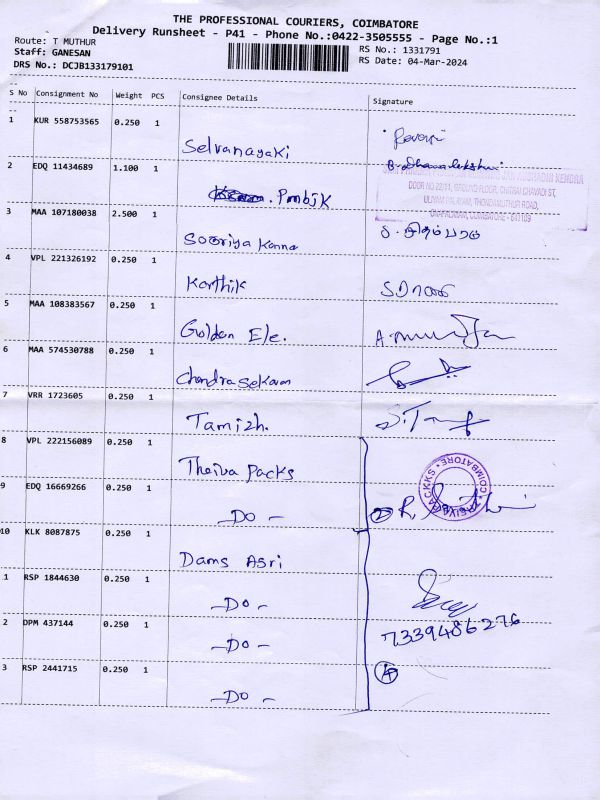 THE PROFESSIONAL COURIERS, COIMBATORE
Delivery Runsheet - P41 - Phone No.:0422-3505555 - Page No.:1
Route: T MUTHUR RS No.: 1331791
Staff: GANESAN RS Date: 04-Mar-2024
DRS No.: DCJB133179101
S No Consignment No Weight PCS Consignee Details Signature
1 KUR 558753565 0.250 1 Selvanayaki
2 EDQ 11434689 1.100 1 Pmbjk B. Dhanalakshmi
DOOR NO 22/11, GROUND FLOOR, CHITRAI CHAVADI ST,
ULIYAM PALAYAM, THONDAMUTHUR ROAD,
COIMBATORE - 641109
3 MAA 107180038 2.500 1 Sooriya Kanna
4 VPL 221326192 0.250 1 Karthik
5 MAA 108383567 0.250 1 Golden Ele.
6 MAA 574530788 0.250 1 Chandrasekaran
7 VRR 1723605 0.250 1 Tamizh.
8 VPL 222156089 0.250 1 Theiva Packs
THEIVA PACKKS * COIMBATORE *
9 EDQ 16669266 0.250 1 - Do - 2
10 KLK 8087875 0.250 1 Dams Asri
1 RSP 1844630 0.250 1 - Do -
2 DPM 437144 0.250 1 - Do - 7339486276
3 RSP 2441715 0.250 1 - Do - 4